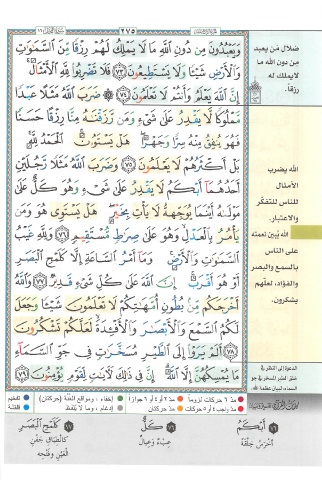 ٢٧٥
وَيَعْبُدُونَ مِن دُونِ ٱللَّهِ مَا لَا يَمْلِكُ لَهُمْ رِزْقًا مِّنَ ٱلسَّمَٰوَٰتِ
وَٱلْأَرْضِ شَيْـًٔا وَلَا يَسْتَطِيعُونَ ٧٣ فَلَا تَضْرِبُوا۟ لِلَّهِ ٱلْأَمْثَالَ
إِنَّ ٱللَّهَ يَعْلَمُ وَأَنتُمْ لَا تَعْلَمُونَ ٧٤ ضَرَبَ ٱللَّهُ مَثَلًا عَبْدًا
مَّمْلُوكًا لَّا يَقْدِرُ عَلَىٰ شَىْءٍ وَمَن رَّزَقْنَٰهُ مِنَّا رِزْقًا حَسَنًا
فَهُوَ يُنفِقُ مِنْهُ سِرًّا وَجَهْرًا هَلْ يَسْتَوُۥنَ ٱلْحَمْدُ لِلَّهِ
بَلْ أَكْثَرُهُمْ لَا يَعْلَمُونَ ٧٥ وَضَرَبَ ٱللَّهُ مَثَلًا رَّجُلَيْنِ
أَحَدُهُمَآ أَبْكَمُ لَا يَقْدِرُ عَلَىٰ شَىْءٍ وَهُوَ كَلٌّ عَلَىٰ
مَوْلَىٰهُ أَيْنَمَا يُوَجِّههُّ لَا يَأْتِ بِخَيْرٍ هَلْ يَسْتَوِى هُوَ وَمَن
يَأْمُرُ بِٱلْعَدْلِ وَهُوَ عَلَىٰ صِرَٰطٍ مُّسْتَقِيمٍ ٧٦ وَلِلَّهِ غَيْبُ
ٱلسَّمَٰوَٰتِ وَٱلْأَرْضِ وَمَآ أَمْرُ ٱلسَّاعَةِ إِلَّا كَلَمْحِ ٱلْبَصَرِ
أَوْ هُوَ أَقْرَبُ إِنَّ ٱللَّهَ عَلَىٰ كُلِّ شَىْءٍ قَدِيرٌ ٧٧ وَٱللَّهُ
أَخْرَجَكُم مِّنۢ بُطُونِ أُمَّهَٰتِكُمْ لَا تَعْلَمُونَ شَيْـًٔا وَجَعَلَ
لَكُمُ ٱلسَّمْعَ وَٱلْأَبْصَٰرَ وَٱلْأَفْـِٔدَةَ لَعَلَّكُمْ تَشْكُرُونَ
٧٨ أَلَمْ يَرَوْا۟ إِلَى ٱلطَّيْرِ مُسَخَّرَٰتٍ فِى جَوِّ ٱلسَّمَآءِ
مَا يُمْسِكُهُنَّ إِلَّا ٱللَّهُ إِنَّ فِى ذَٰلِكَ لَءَايَٰتٍ لِّقَوْمٍ يُؤْمِنُونَ ٧٩
ضلال من يعبد
من دون الله ما
لا يملك له
رزقاً.
الله يضرب
الأمثال
للناس للتفكّر
والاعتبار.
الله يُبيّن نعمته
على الناس
بالسمع والبصر
والفؤاد، لعلّهم
يشكرون.
مدّ ٦ حركات لزوماً
مدّ ٢ أو ٤ أو ٦ جوازاً
إخفاء، ومواقع الغنّة (حركتان)
تفخيم
مدّ واجب ٤ أو ٥ حركات
مدّ حركتان
إدغام، وما لا يُلفظ
قلقلة
٧٦ أَبْكَمُ
أخرس خِلقةً
٧٦ كَلٌّ
عبءٌ وعِيالٌ
٧٧ كَلَمْحِ ٱلْبَصَرِ
كانطباق جفن
العين وفتحه